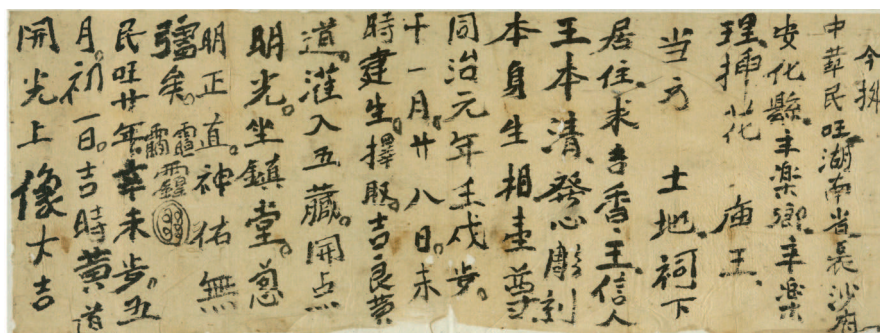 今據
中華民旺湖南省長沙府
安化縣丰楽鄉丰楽
理揷花 庙王
当方 土地祠下
居住求吉香王信人
王本清發心彫刻
本身生相壹尊
同治元年壬戌歩
十一月廿八日未
時建生擇取吉良黄
道灌入五藏開点
明光坐鎮堂
明正直神佑無
彊矣
民旺廿年辛未歩五
月初一日吉時黄道
開光上像大吉